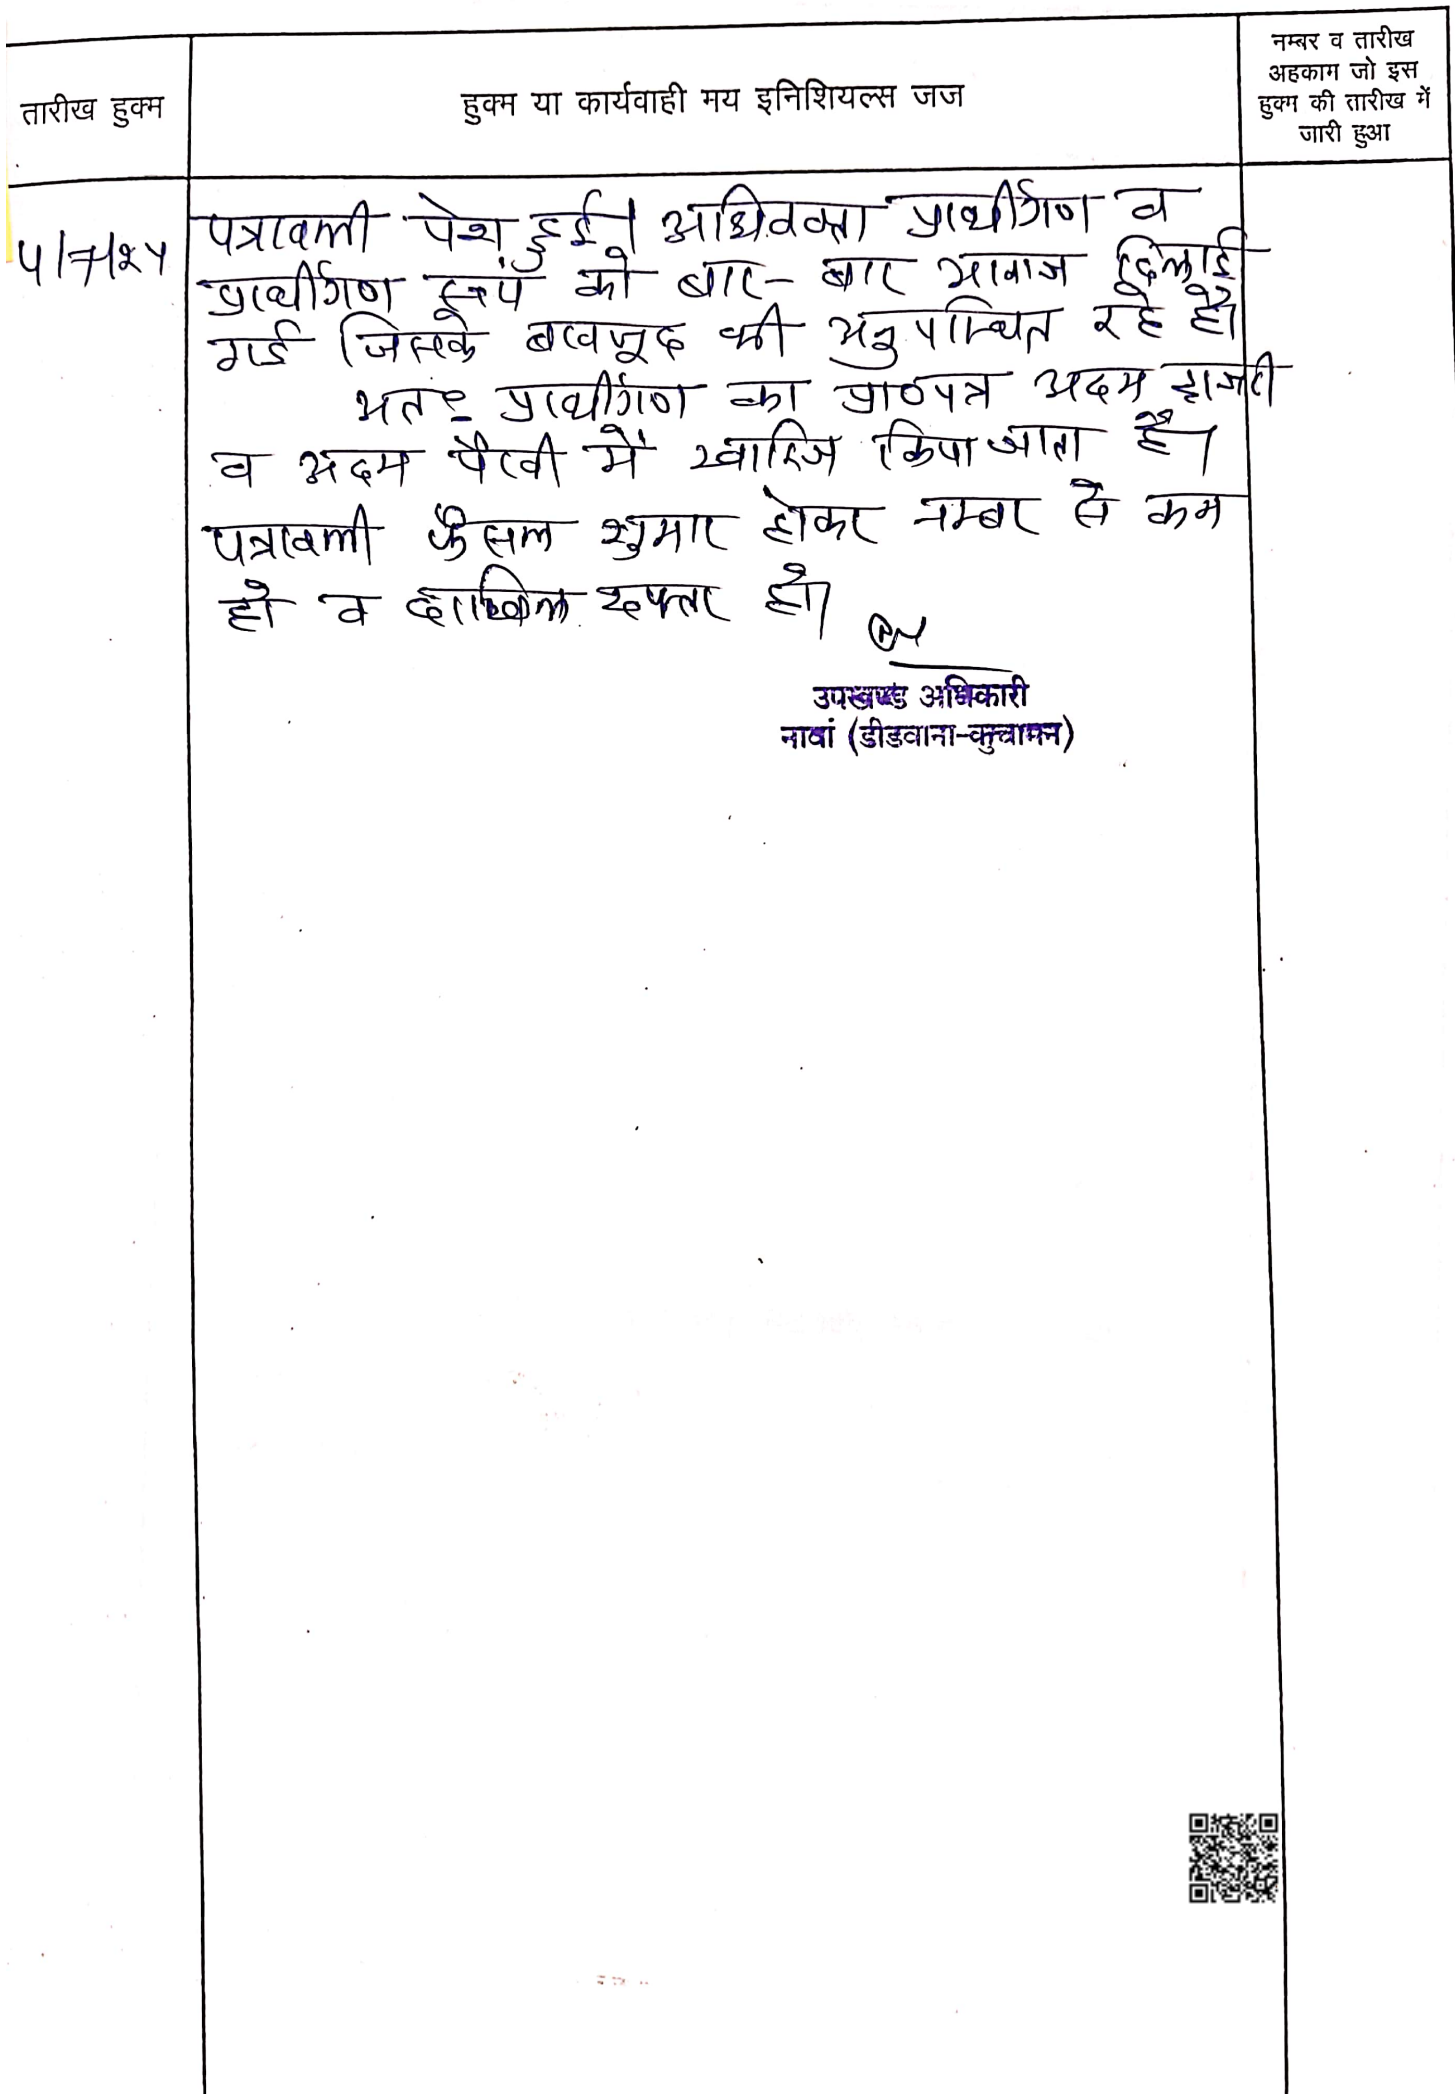 तारीख हुक्म
हुक्म या कार्यवाही मय इनिशियल्स जज
नम्बर व तारीख
अहकाम जो इस
हुक्म की तारीख में
जारी हुआ
पत्रावली पेश हुई। अधिवक्ता प्रार्थीगण व
प्रार्थीगण स्वयं को बार-बार आवाज दिलाई
गई जिसके बावजूद भी अनुपस्थित रहे है।
अतः प्रार्थीगण का प्रा०पत्र अदम हाजरी
व अदम पैरवी में खारिज किया जाता है।
पत्रावली फैसल शुमार होकर नम्बर से कम
हो व दाखिल दफ्तर हो।
उपखण्ड अधिकारी
नावां (डीडवाना-कुचामन)